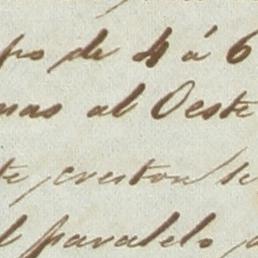 po de 4 á 6
mas al Oeste
te creston
paralelo